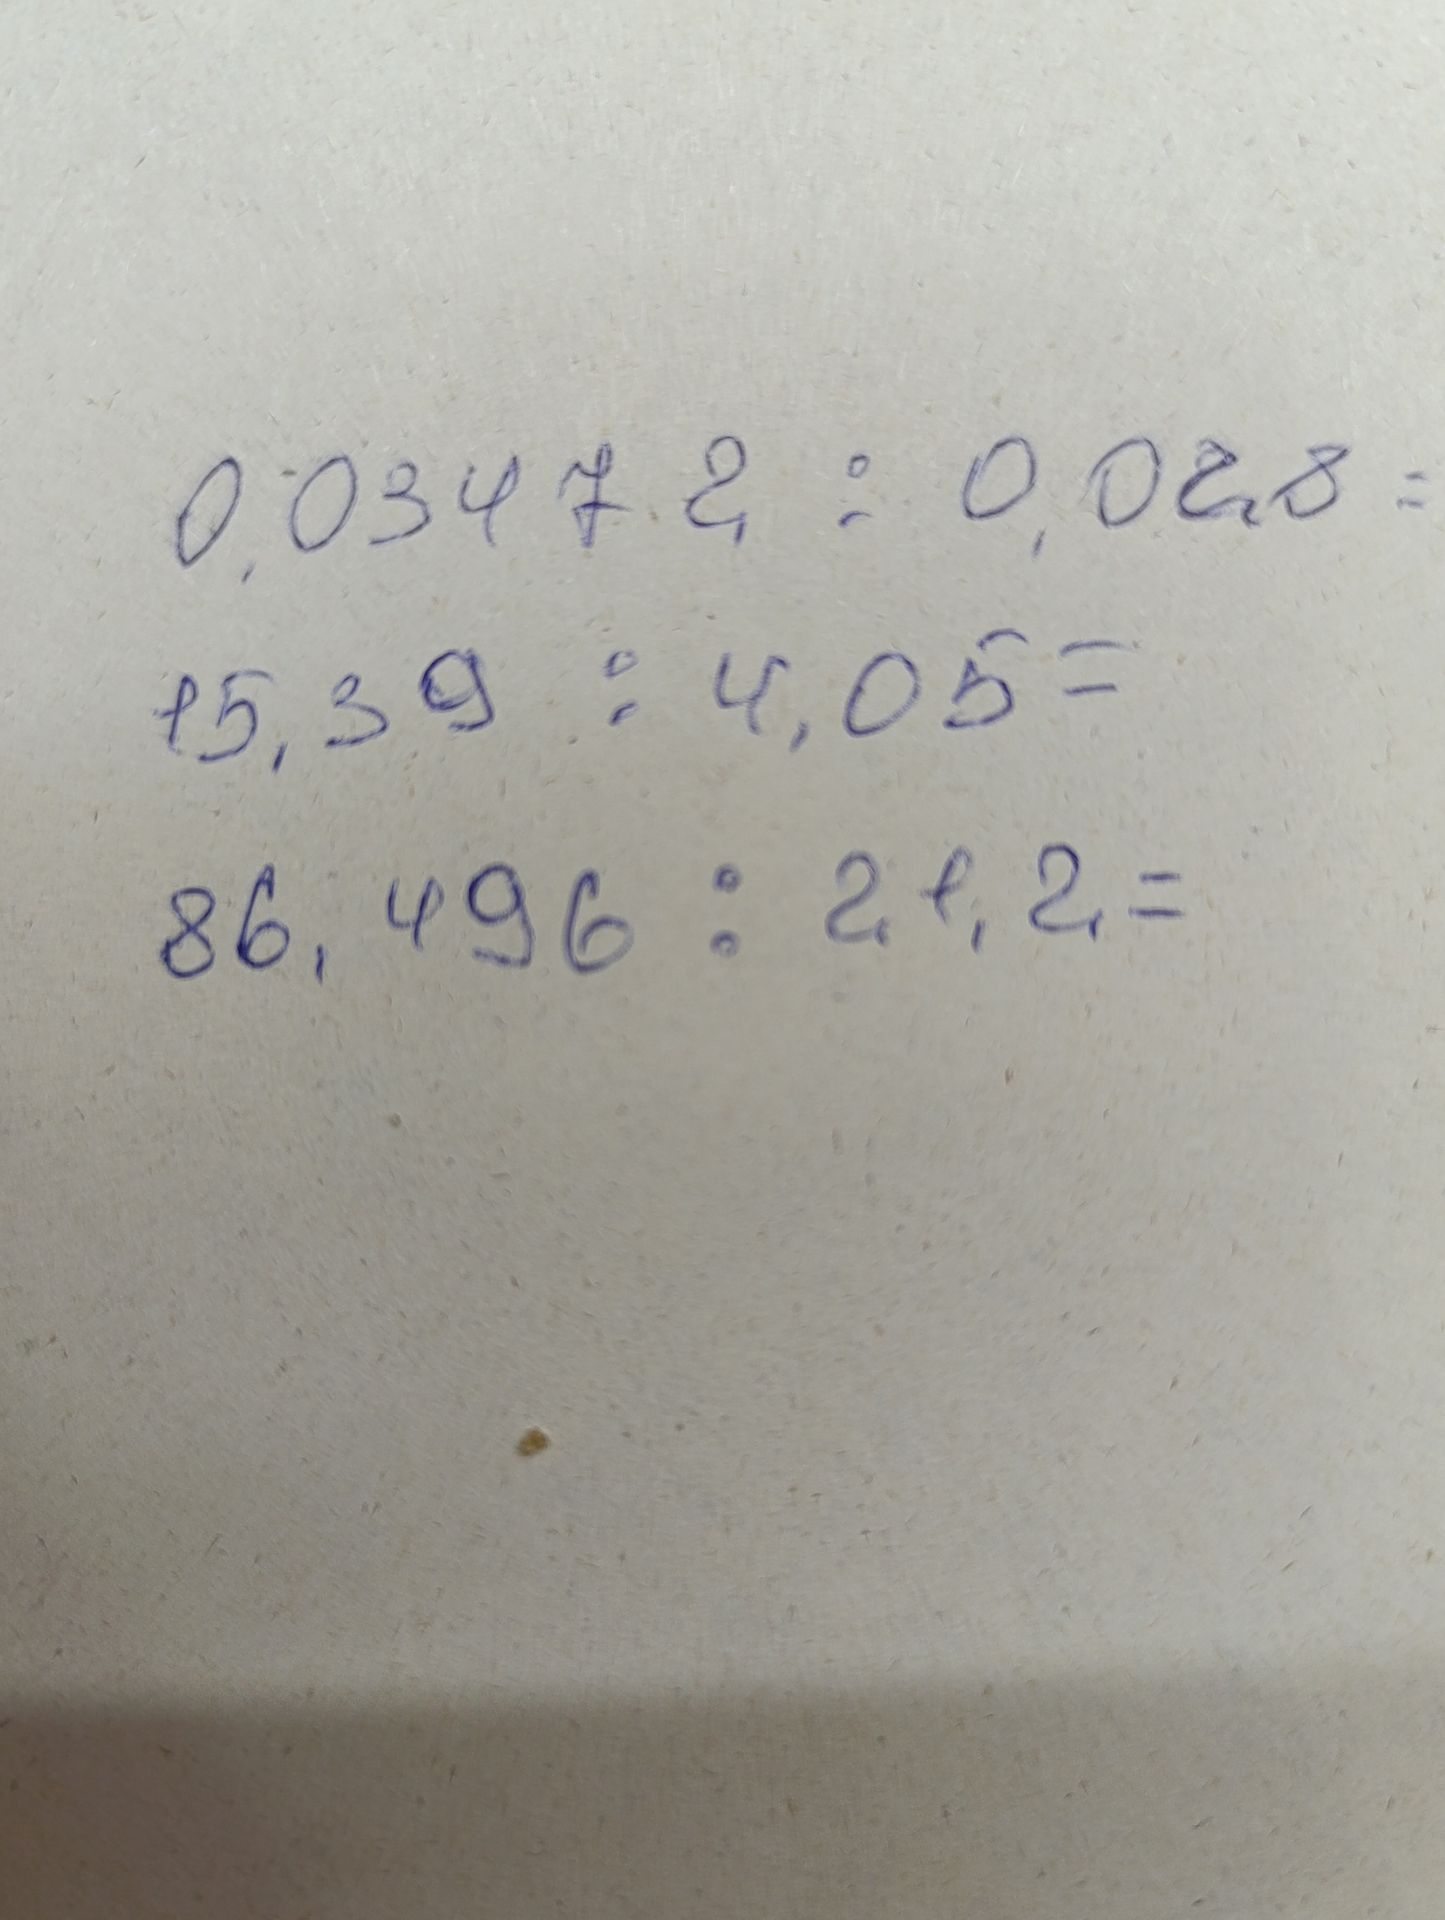 0,03472 : 0,028 =
15,39 : 4,05 =
86,496 : 21,2 =